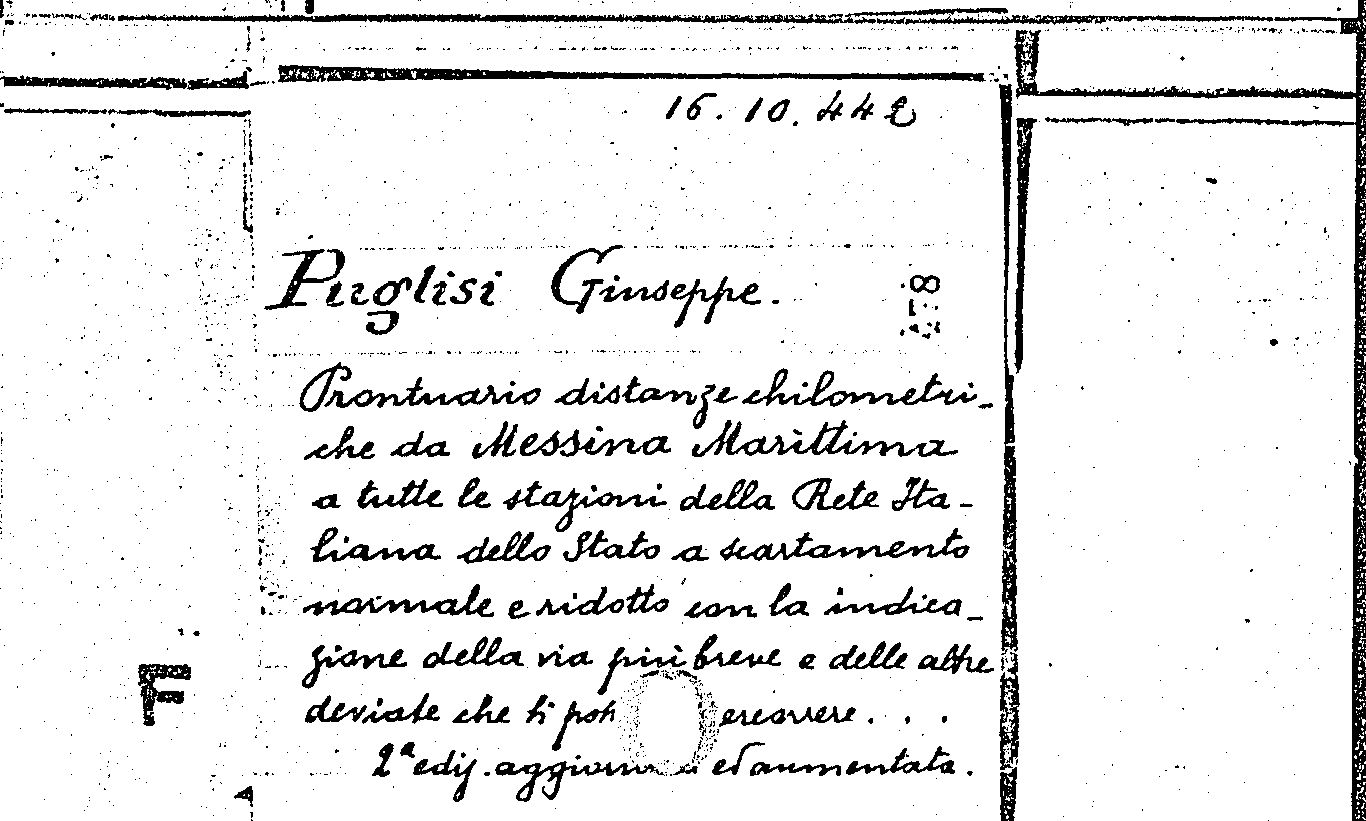 16.10.442
Puglisi Giuseppe.
Prontuario distanze chilometri-
che da Messina Marittima
a tutte le stazioni della Rete Ita-
liana dello Stato a scartamento
normale e ridotto con la indica-
zione della via più breve e delle altre
deviate che
2ª ediz. ed aumentata.
F